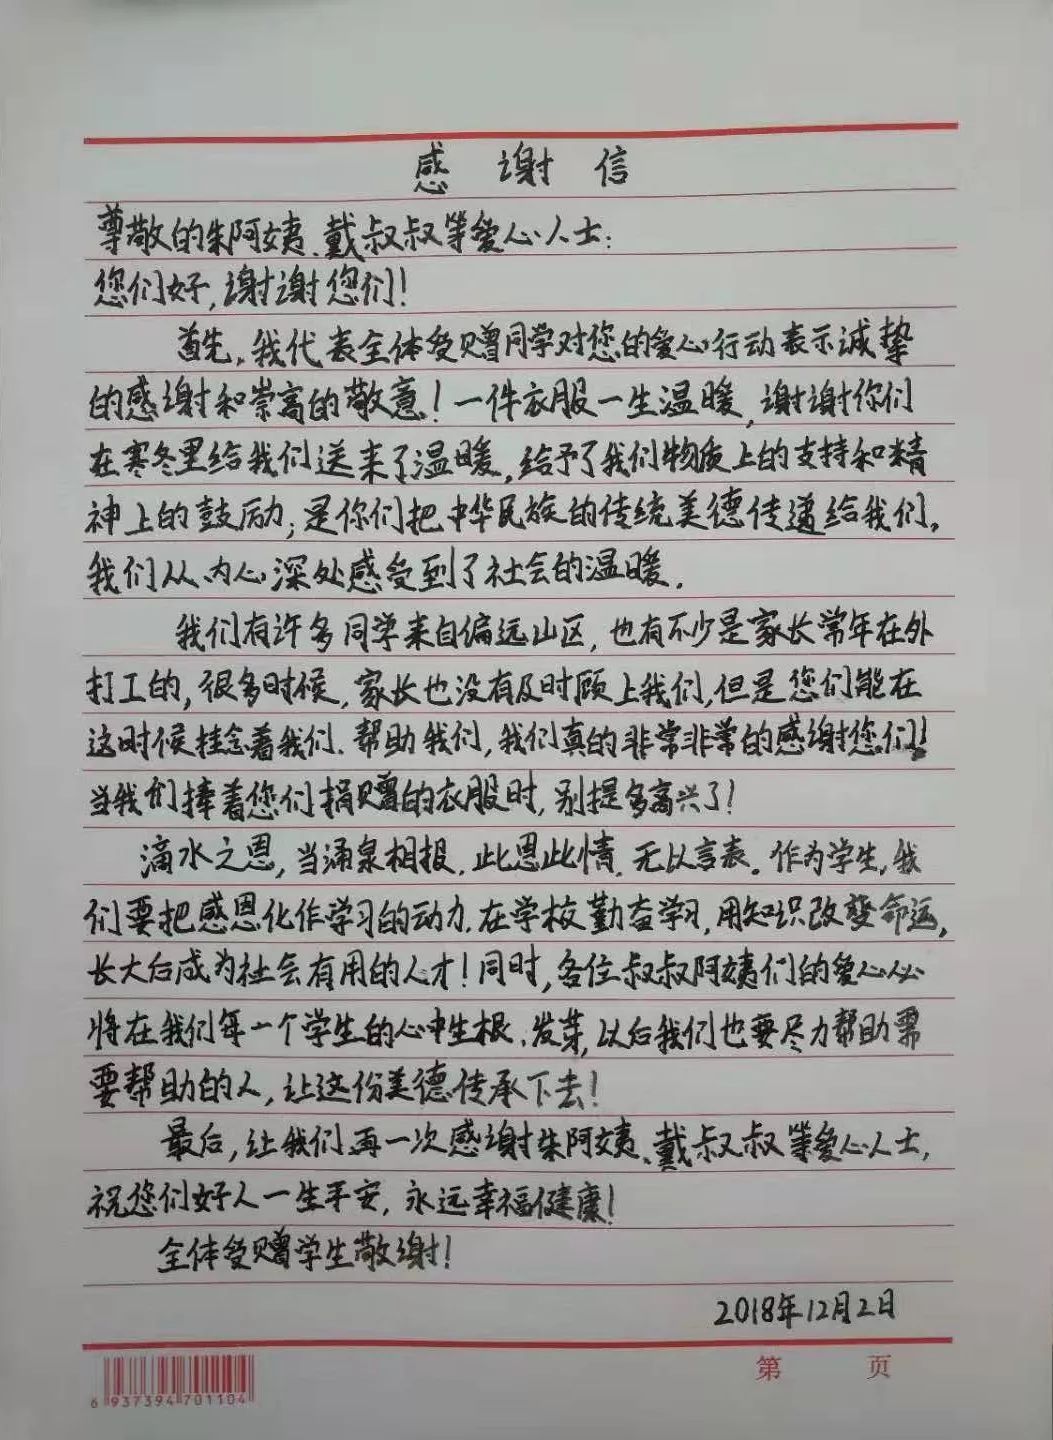 感谢信
尊敬的朱阿姨、戴叔叔等爱心人士：
您们好，谢谢您们！
首先，我代表全体受赠同学对您的爱心行动表示诚挚
的感谢和崇高的敬意！一件衣服一生温暖，谢谢你们
在寒冬里给我们送来了温暖，给予了我们物质上的支持和精
神上的鼓励；是你们把中华民族的传统美德传递给我们，
我们从内心深处感受到了社会的温暖。
我们有许多同学来自偏远山区，也有不少是家长常年在外
打工的，很多时候，家长也没有及时顾上我们，但是您们能在
这时候挂念着我们、帮助我们，我们真的非常非常的感谢您们！
当我们捧着您们捐赠的衣服时，别提多高兴了！
滴水之恩，当涌泉相报，此恩此情，无以言表。作为学生，我
们要把感恩化作学习的动力，在学校勤奋学习，用知识改变命运，
长大后成为社会有用的人才！同时，各位叔叔阿姨们的爱心必
将在我们每一个学生的心中生根、发芽，以后我们也要尽力帮助需
要帮助的人，让这份美德传承下去！
最后，让我们再一次感谢朱阿姨、戴叔叔等爱心人士，
祝您们好人一生平安，永远幸福健康！
全体受赠学生敬谢！
2018年12月2日
第 页
6 937394 701104